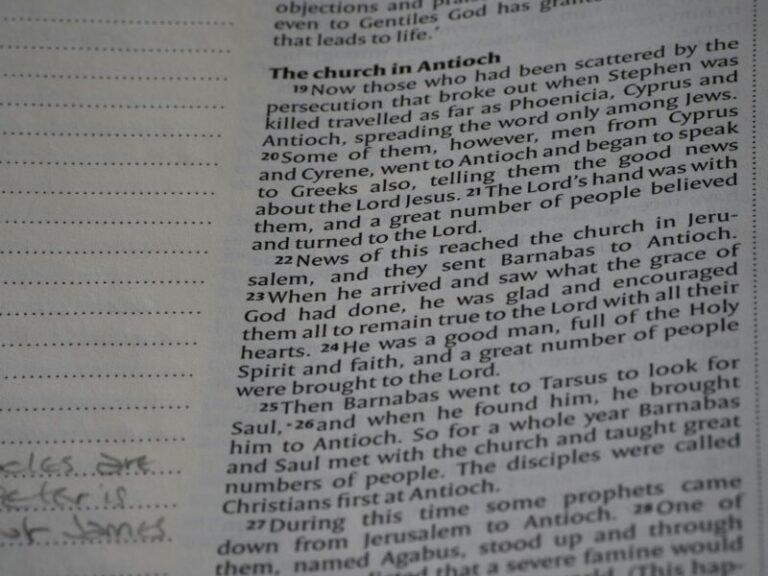 objections and
even to Gentiles God has
that leads to life.'
The church in Antioch
19Now those who had been scattered by the
persecution that broke out when Stephen was
killed travelled as far as Phoenicia, Cyprus and
Antioch, spreading the word only among Jews.
20Some of them, however, men from Cyprus
and Cyrene, went to Antioch and began to speak
to Greeks also, telling them the good news
about the Lord Jesus. 21The Lord's hand was with
them, and a great number of people believed
and turned to the Lord.
22News of this reached the church in Jeru-
salem, and they sent Barnabas to Antioch.
23When he arrived and saw what the grace of
God had done, he was glad and encouraged
them all to remain true to the Lord with all their
hearts. 24He was a good man, full of the Holy
Spirit and faith, and a great number of people
were brought to the Lord.
25Then Barnabas went to Tarsus to look for
Saul, 26and when he found him, he brought
him to Antioch. So for a whole year Barnabas
and Saul met with the church and taught great
numbers of people. The disciples were called
Christians first at Antioch.
27During this time some prophets came
down from Jerusalem to Antioch. 28One of
them, named Agabus, stood up and through
that a severe famine would
(This hap-
are
is
James